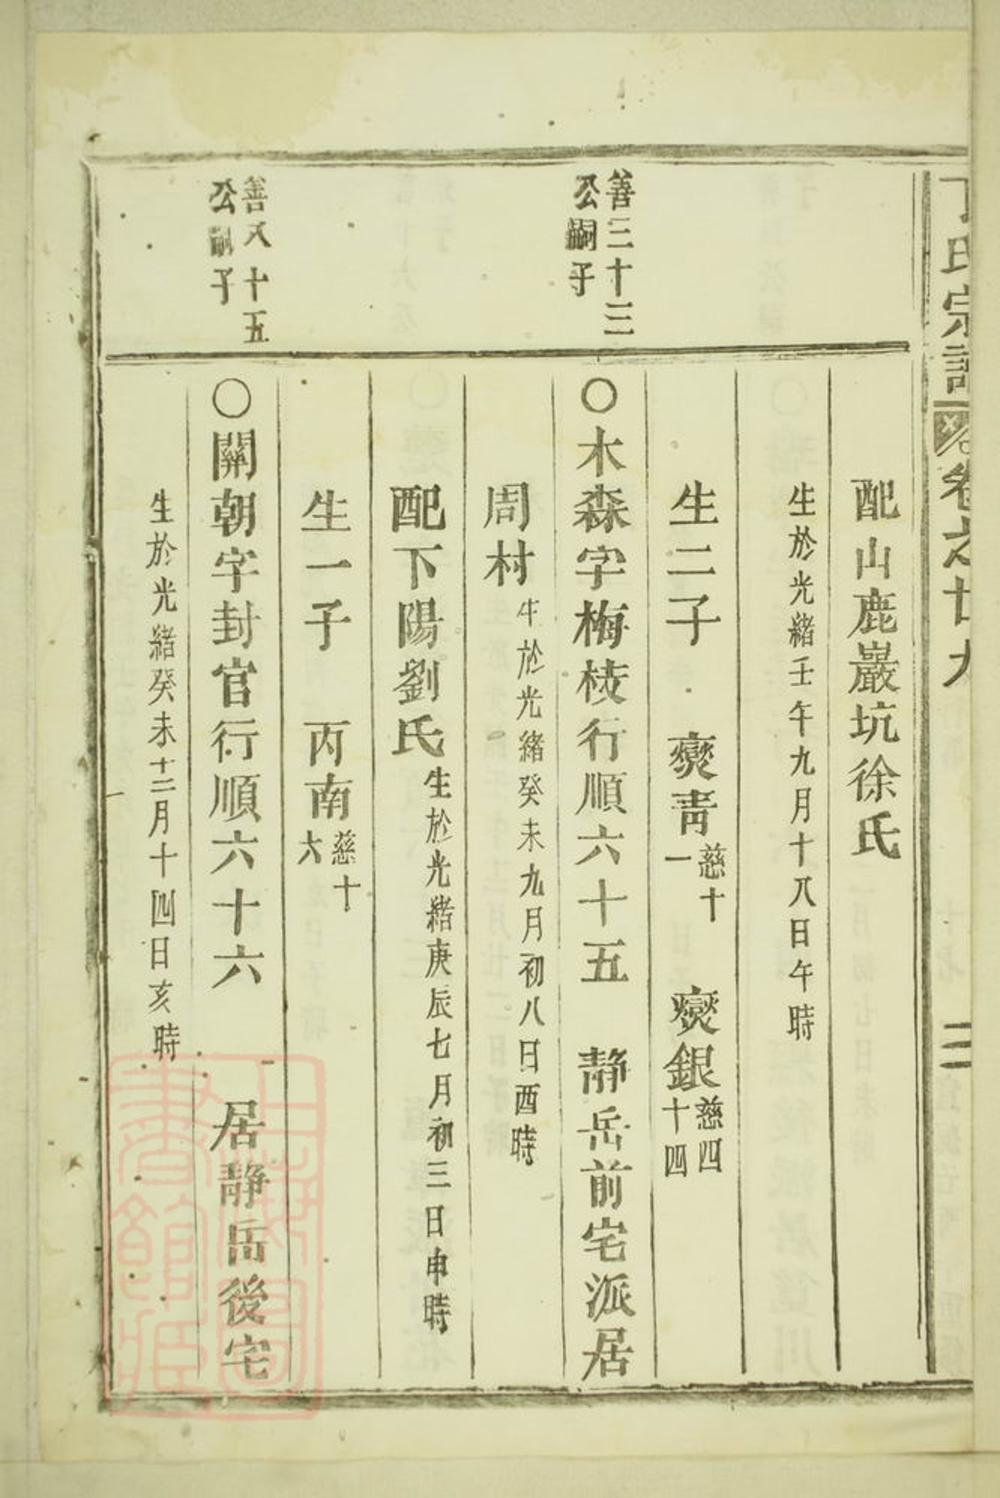 丁氏宗譜 卷之廿九 二
配山鹿巖坑徐氏
生於光緒壬午九月十八日午時
生二子 燮青慈十一 燮銀慈四十四
善三十三公嗣子
〇木森字梅棱行順六十五 靜岳前宅派居
周村生於光緒癸未九月初八日酉時
配下陽劉氏生於光緒庚辰七月初三日申時
生一子 丙南慈十六
善八十五公嗣子
〇關朝字封官行順六十六 居靜岳後宅
生於光緒癸未十二月十四日亥時
上海圖書館藏